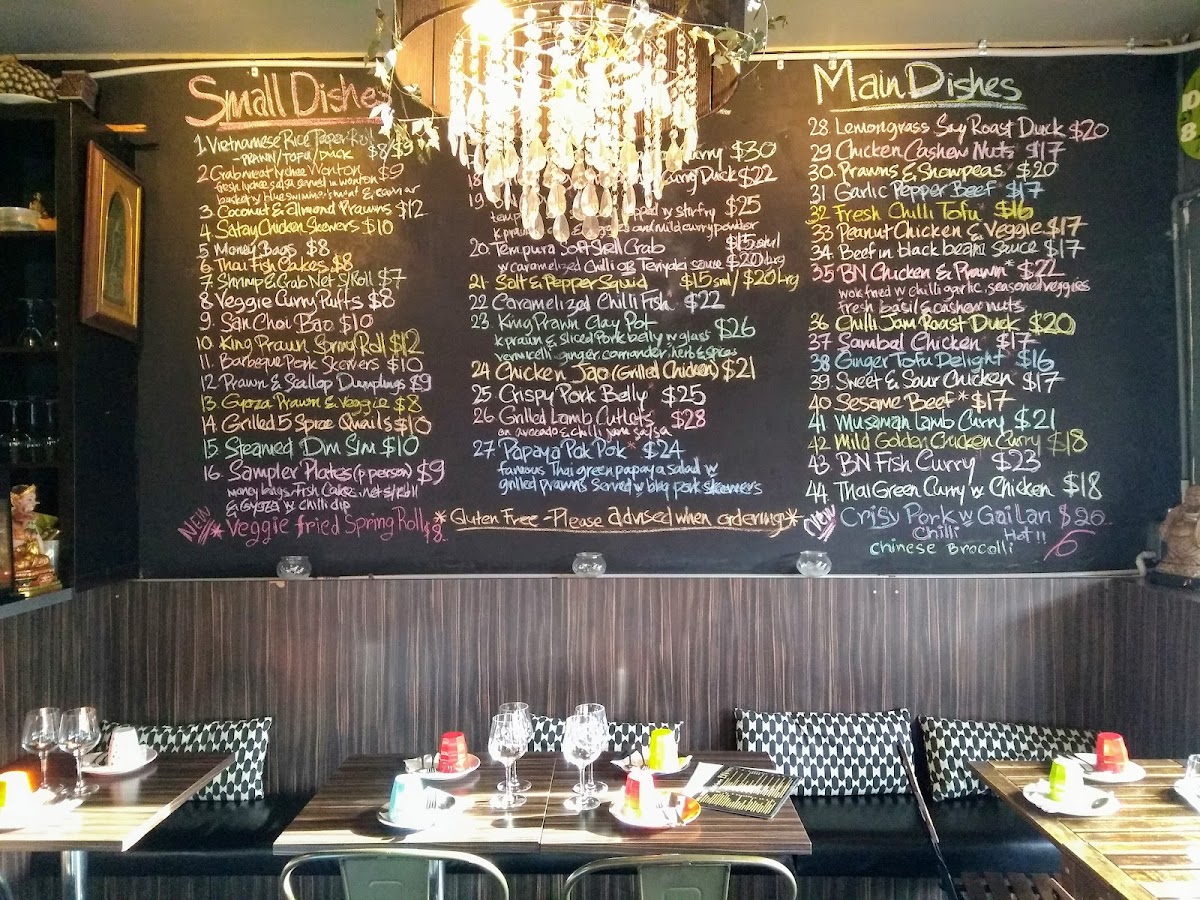 Small Dishes
1. Vietnamese Rice Paper Roll
- Prawn / Tofu / Duck $8/$9
2. Crabmeat lychee Wonton $9
fresh lychee salsa served in wonton
basket w blue swimmer's meat & caviar
3. Coconut & almond Prawns $12
4. Satay Chicken Skewers $10
5 Money Bags $8
6 Thai Fish Cakes $8
7 Shrimp & Crab Net S/Roll $7
8 Veggie Curry Puffs $8
9. San Choi Bao $10
10. King Prawn Spring Roll $12
11. Barbeque Pork Skewers $10
12 Prawn & Scallop Dumplings $9
13. Gyoza Prawn & Veggie $8
14 Grilled 5 Spice Quails $10
15 Steamed Dim Sim $10
16. Sampler Plates (p person) $9
money bags, Fish Cake, net s/roll
& Gyoza w chilli dip
NEW * Veggie fried Spring Roll $8
Curry $30
18. Curry Duck $22
19. $25
stirfry
k prawn and mild curry powder
20. Tempura Soft Shell Crab $15 sml
w caramelized chilli or Teriyaki sauce $20 Lrg
21 Salt & Pepper Squid $15 sml / $20 Lrg
22 Caramelized Chilli Fish $22
23. King Prawn Clay Pot $26
k prawn & sliced Pork belly w glass
vermicelli ginger, coriander, herb & spices
24 Chicken Jao (Grilled Chicken) $21
25. Crispy Pork Belly $25
26 Grilled Lamb Cutlets $28
on avocado & chilli jam salsa
27 Papaya Pok Pok * $24
famous Thai green papaya salad w
grilled prawns served w bbq pork skewers
* Gluten Free - Please advised when ordering *
Main Dishes
28. Lemongrass Soy Roast Duck $20
29 Chicken Cashew Nuts $17
30. Prawns & Snowpeas * $20
31 Garlic Pepper Beef * $17
32 Fresh Chilli Tofu * $16
33 Peanut Chicken & Veggie $17
34 Beef in black bean Sauce $17
35 BN Chicken & Prawn * $22
wok fried w chilli garlic, seasoned veggies
fresh basil & cashew nuts
36 Chilli Jam Roast Duck $20
37 Sambal Chicken $17
38 Ginger Tofu Delight $16
39 Sweet & Sour Chicken $17
40 Sesame Beef * $17
41 Musaman Lamb Curry $21
42 Mild Golden Chicken Curry $18
43 BN Fish Curry $23
44 Thai Green Curry w Chicken $18
New Crisy Pork w Gai Lan $26
Chilli Hot!!
chinese Brocolli